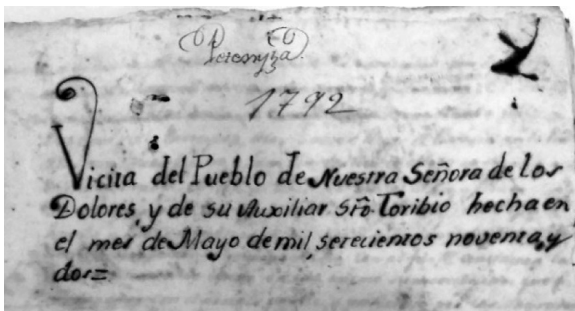 1792
Vicita del Pueblo de Nuestra Señora de los
Dolores, y de su Auxiliar Sto. Toribio hecha en
el mes de Mayo de mil, setecientos noventa, y
dos=